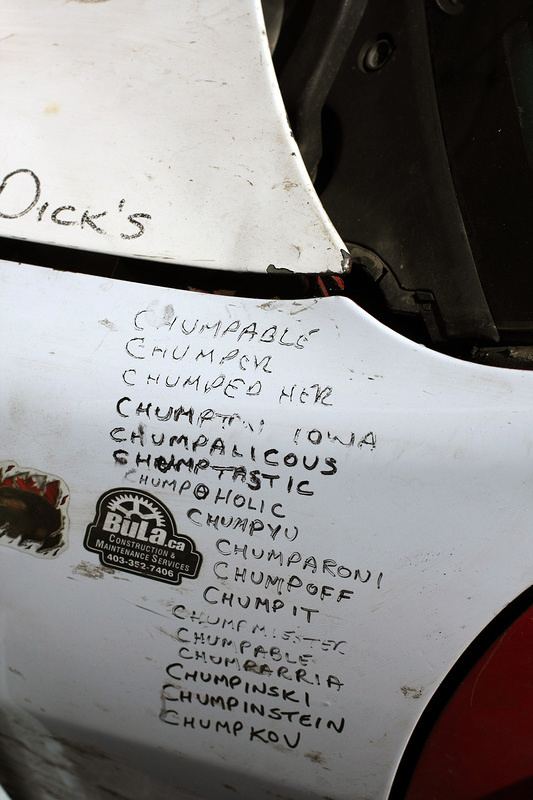 Dick's
CHUMPABLE
CHUMPER
CHUMPED HER
CHUMPTON IOWA
CHUMPALICOUS
CHUMPTASTIC
CHUMPOHOLIC
CHUMPYU
BULA.ca
CONSTRUCTION &
MAINTENANCE SERVICES
403-352-7406
CHUMPARONI
CHUMPOFF
CHUMP IT
CHUMPMIESTER
CHUMPABLE
CHUMBARRIA
CHUMPINSKI
CHUMPINSTEIN
CHUMPKOV